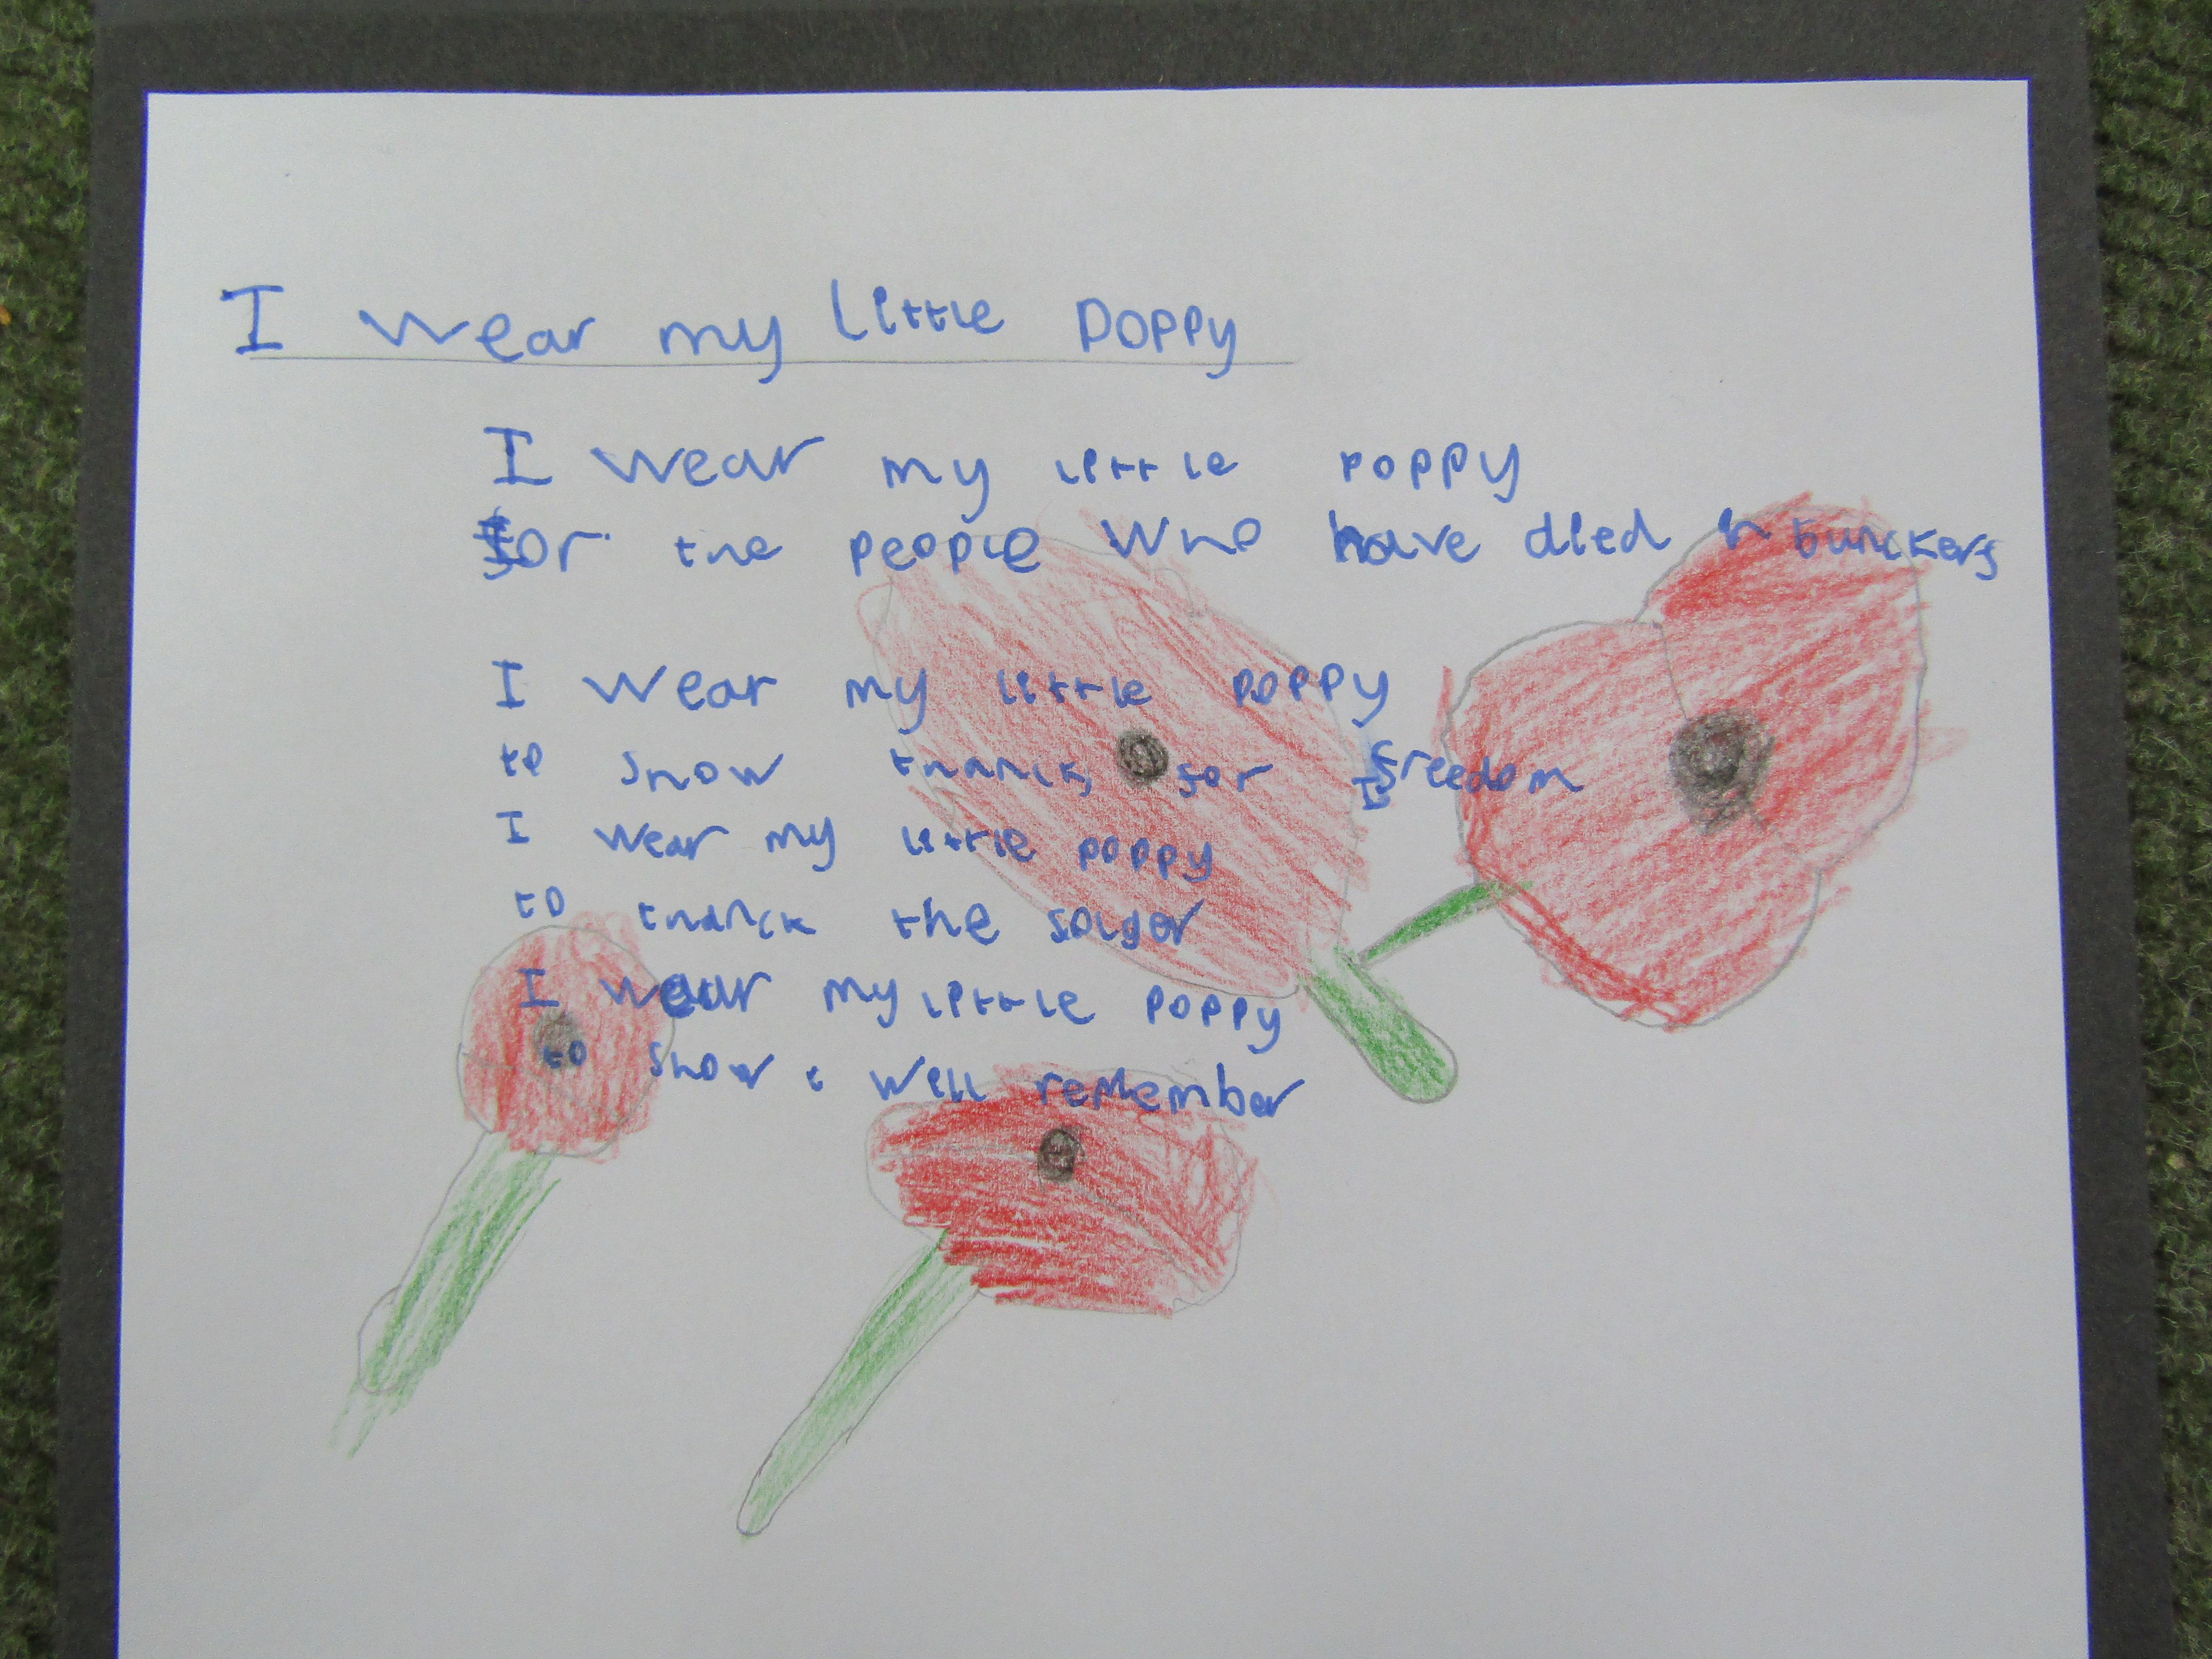 I wear my little poppy
I wear my little poppy
for the people who have died in bunckers
I wear my little poppy
to show thanck for freedom
I wear my little poppy
to thanck the solgor
I wear my little poppy
to show i will remember